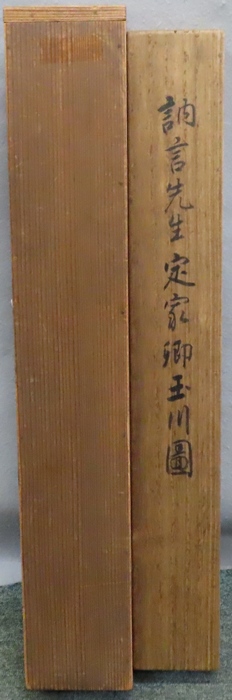 訥言先生定家卿玉川圖